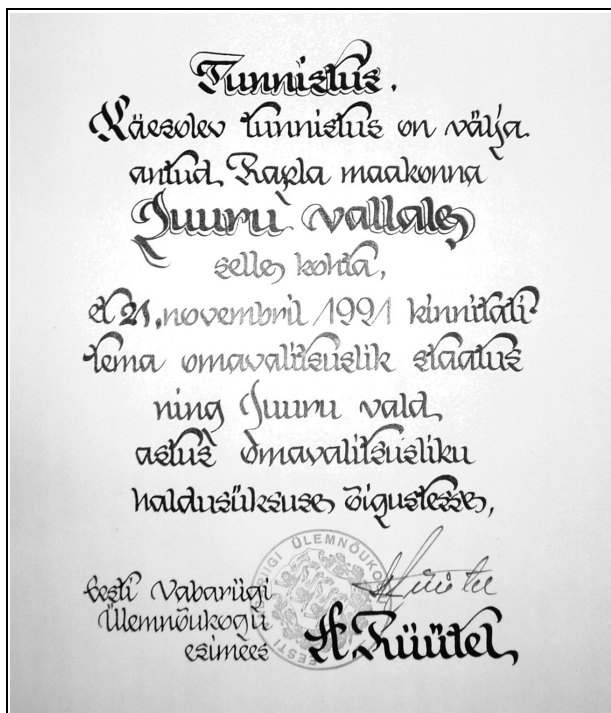 Tunnistus.
Käesolev tunnistus on välja
antud Rapla maakonna
Juuru vallale
selle kohta,
et 21. novembril 1991 kinnitati
tema omavalitsuslik staatus
ning Juuru vald
astus omavalitsusliku
haldusüksuse õigustesse.
Eesti Vabariigi
Ülemnõukogu
esimees
A. Rüütel
ÜLEMNÕUKO
EESTI